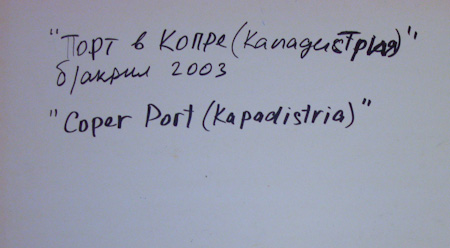 "Порт в Копре (Каподистрия)"
б/акрил 2003
"Coper Port (Kapadistria)"